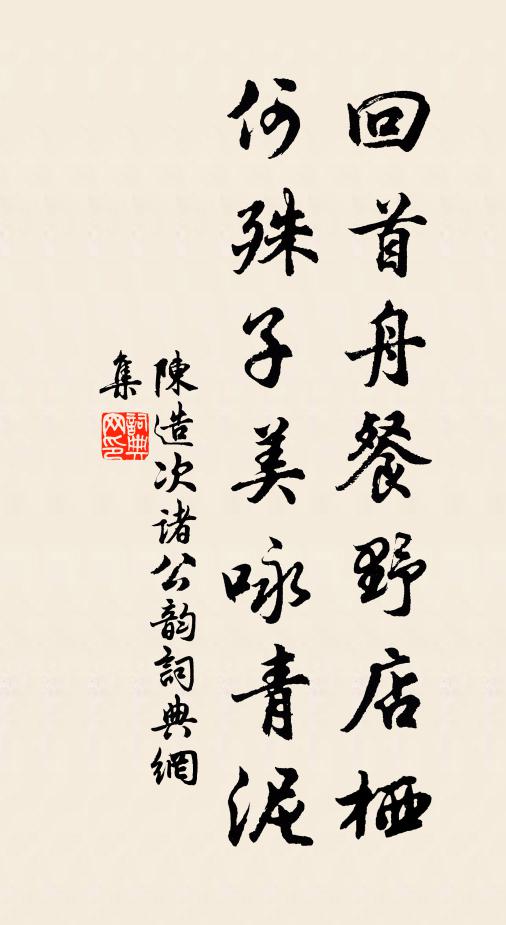 回首舟餐野店栖
何殊子美咏青泥
陳造次诸公韵詞典網
集
詞典网印